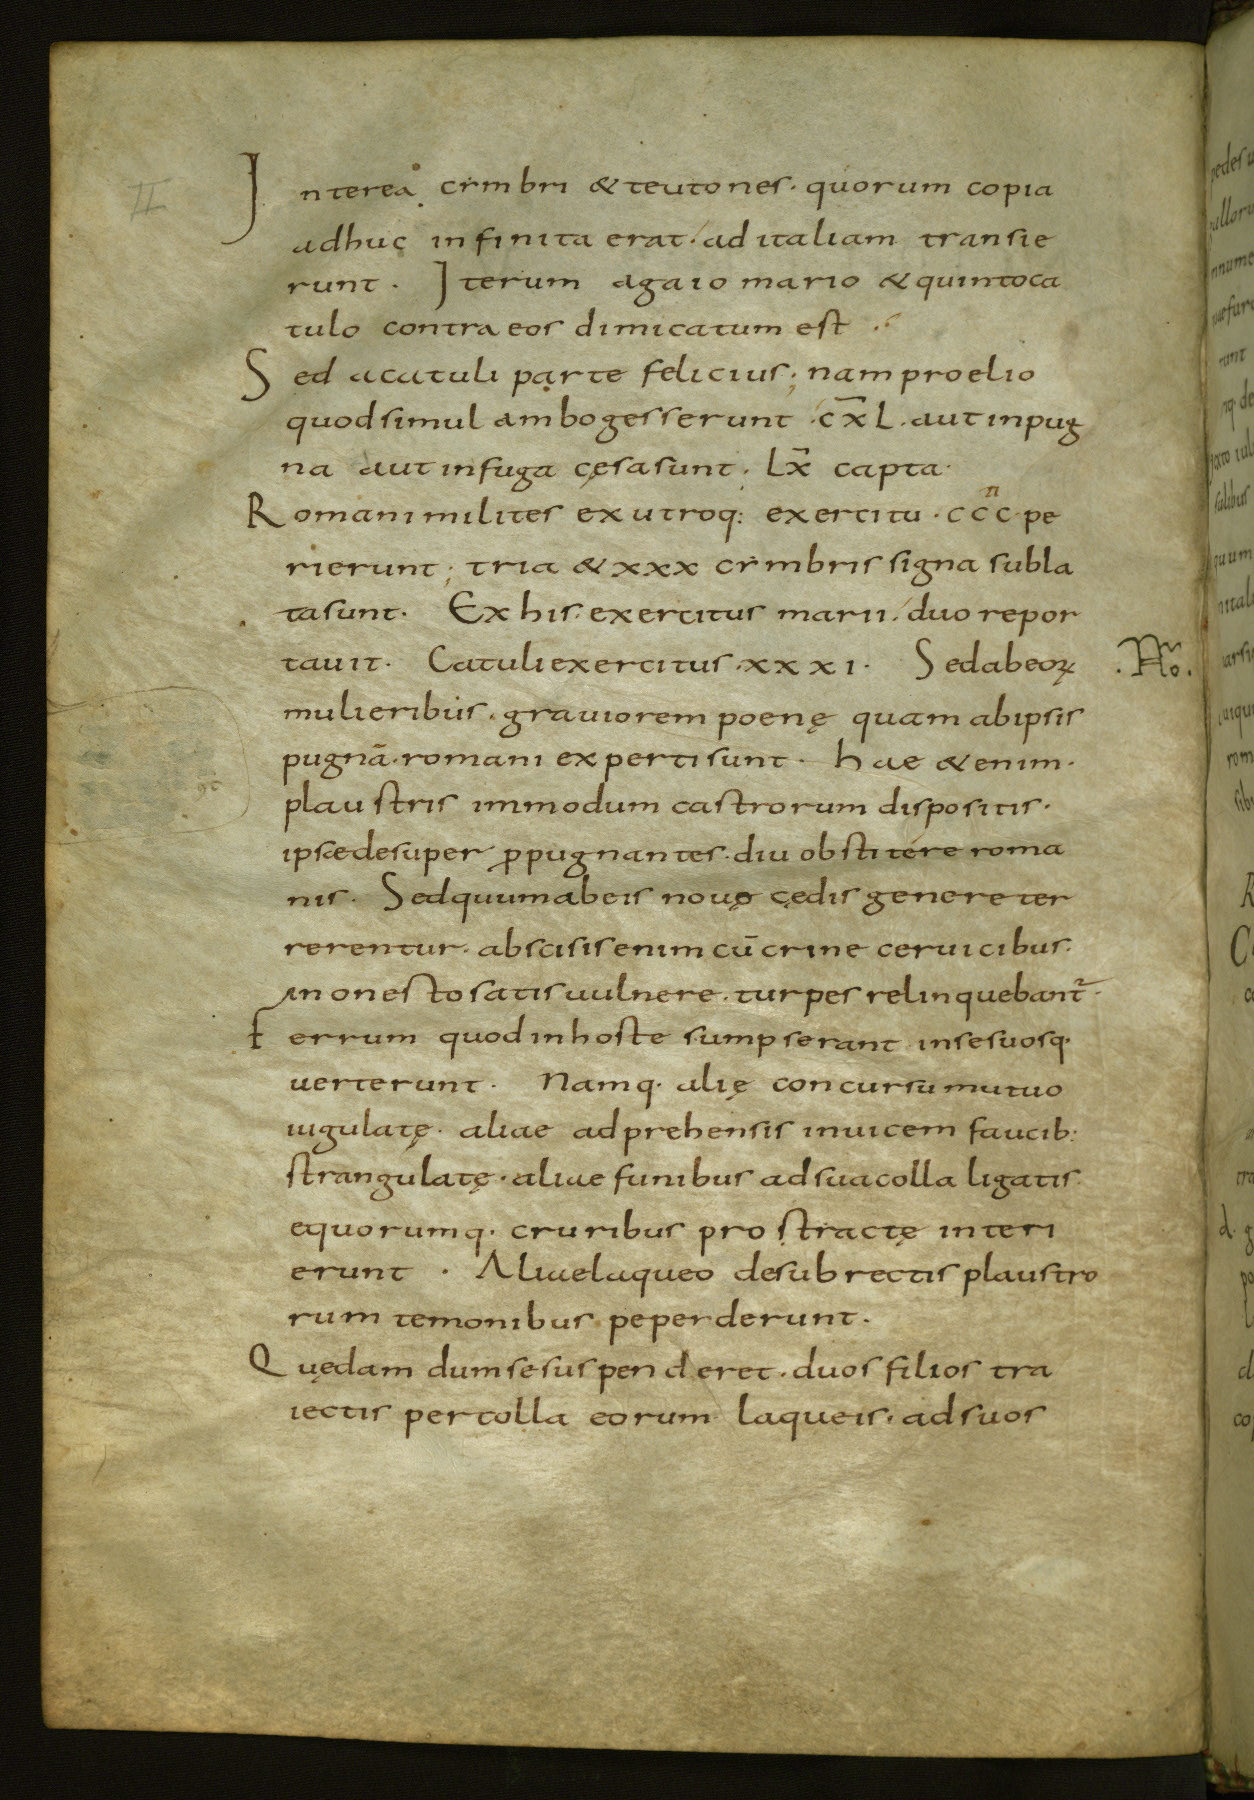 II
Interea cimbri & teutones. quorum copia
adhuc infinita erat. ad italiam transie
runt. Iterum agaio mario & quintoca
tulo contra eos dimicatum est
Sed acatuli parte felicius; nam proelio
quodsimul ambogesserunt .cx̄L. aut inpug
na aut infuga cęsasunt. Lx̄ capta.
Romani milites exutroq: exercitu .ccc. pe
rierunt; tria & xxx cimbris signa subla
tasunt. Ex his. exercitus marii. duo repor
tauit. Catuliexercitus .xxxi. Sedabeoꝝ
mulieribus. grauiorem poenę quam abipsis
pugnā. romani expertisunt. hae &enim.
plaustris immodum castrorum dispositis.
ipsędesuper ꝓpugnantes. diu obstitere roma
nis. Sedquumabeis nouę cędis genere ter
rerentur. abscisisenim cū crine ceruicibus.
inonestosatis uulnere. turpes relinquebant᷑.
Ferrum quodinhoste sumpserant insesuosq.
uerterunt. Namq. alię concursu mutuo
iugulatę. aliae adprehensis inuicem faucib:
strangulatę. aliae funibus adsuacolla ligatis.
equorumq. cruribus prostractę interi
erunt. Aliaelaqueo desubrectis plaustro
rum temonibus peperderunt.
Quędam dumsesuspenderet. duos filios tra
iectis percolla eorum laqueis. adsuos